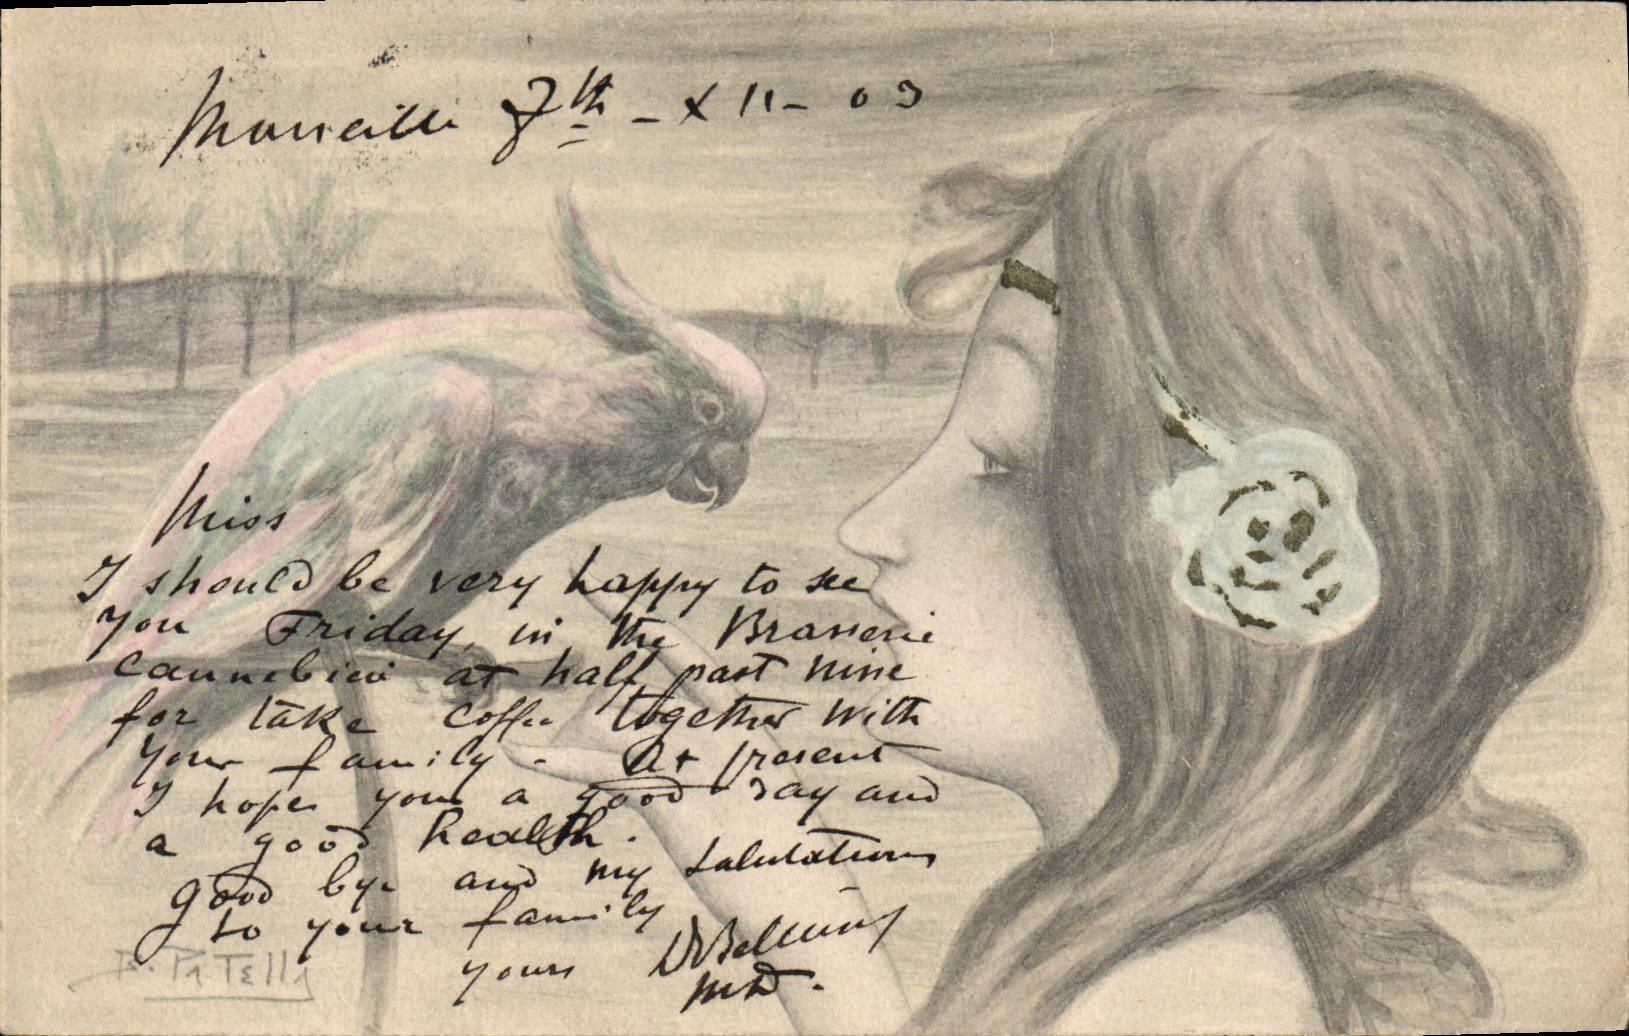 Marseille 7th - XII - 03
Miss
I should be very happy to see
you Friday, in the Brasserie
at half past nine
for take coffee together with
your family - At present
I hope you a good day and
a good health.
good bye and my salutations
to your family
yours
MD.
B. PATELLA